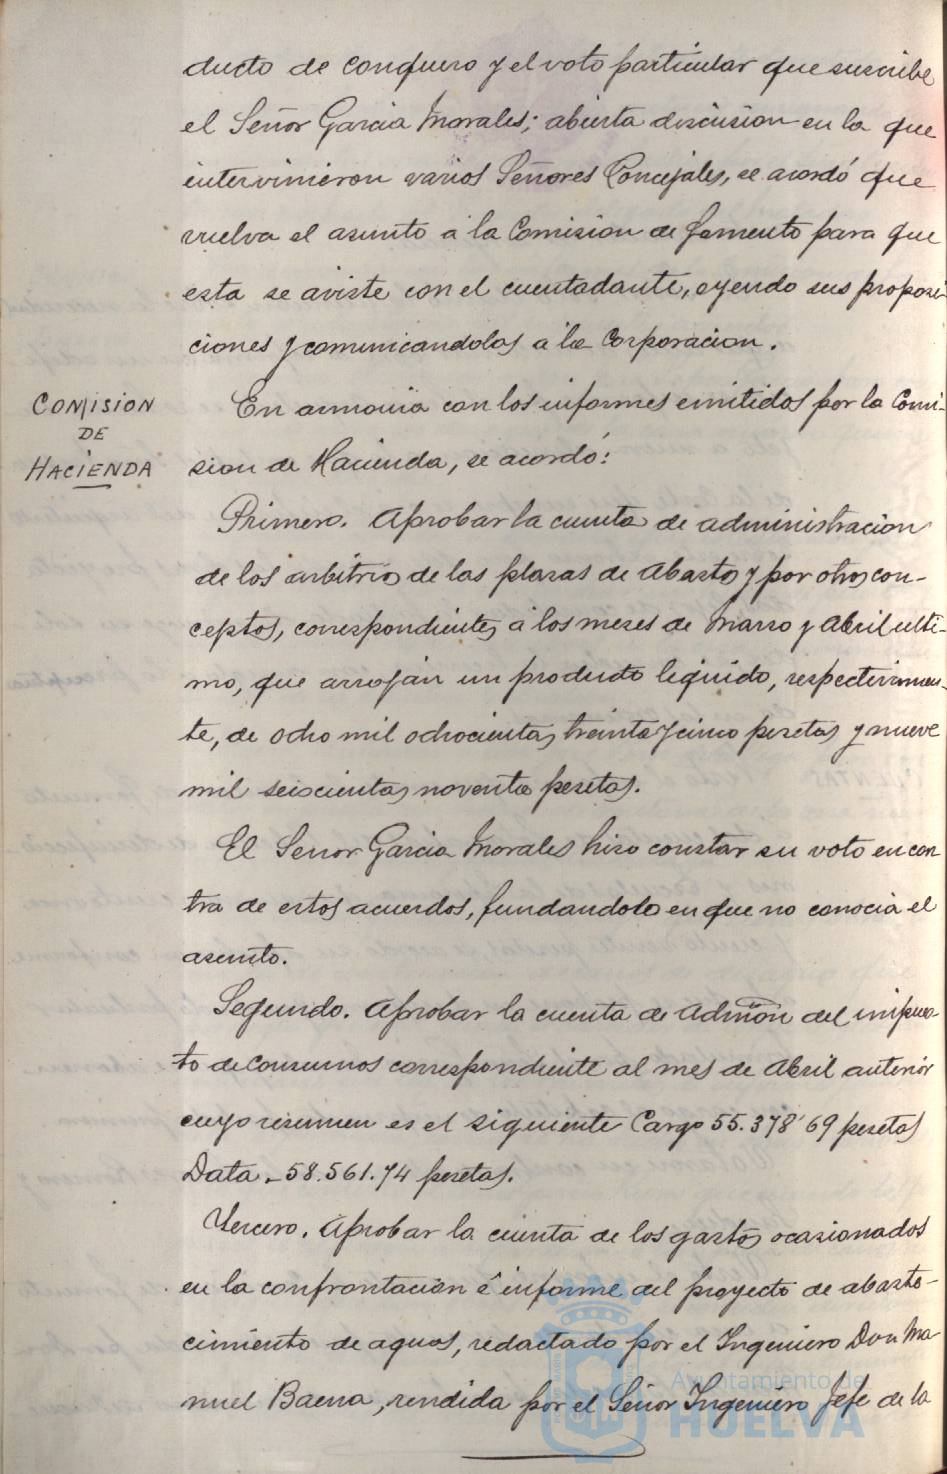 ducto de Conquero y el voto particular que suscribe
el Señor Garcia Morales; abierta discusion en la que
intervinieron varios Señores Concejales, se acordó que
vuelva el asunto a la Comision de Fomento para que
esta se aviste con el cuentadante, oyendo sus proposi-
ciones y comunicandolas a la Corporacion.
COMISION
DE
HACIENDA
En armonia con los informes emitidos por la Comi-
sion de Hacienda, se acordó:
Primero. Aprobar la cuenta de administracion
de los arbitrios de las plazas de Abastos y por otros con-
ceptos, correspondientes á los meses de Marzo y Abril ulti-
mo, que arrojan un producto liquido, respectivamen-
te, de ocho mil ochocientas treinta y cinco pesetas y nueve
mil seiscientas noventa pesetas.
El Señor Garcia Morales hizo constar su voto en con
tra de estos acuerdos, fundandolo en que no conocia el
asunto.
Segundo. Aprobar la cuenta de Admon del impues-
to de Consumos correspondiente al mes de Abril anterior
cuyo resumen es el siguiente Cargo 55.378'69 pesetas
Data - 58.561.74 pesetas.
Tercero. Aprobar la cuenta de los gastos ocasionados
en la confrontacion é informe del proyecto de abaste-
cimiento de aguas, redactado por el Ingeniero Don Ma-
nuel Baena, rendida por el Señor Ingeniero Jefe de la
Ayuntamiento de
HUELVA